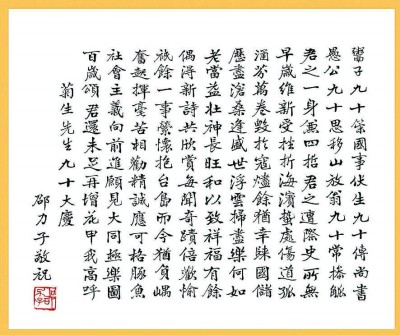 鬻子九十策國事伏生九十傳尚書
愚公九十思移山放翁九十常操觚
君之一身兼四哲君之遭際史所無
早歲維新受挫折海濱蟄處傷道孤
涵芬萬卷毀於寇燼餘猶幸歸國儲
歷盡滄桑逢盛世浮雲掃盡樂何如
老當益壯神長旺和以致祥福有餘
偶得新詩共欣賞每聞奇蹟倍歡愉
祇餘一事縈懷抱台島而今猶負嵎
奮起揮毫苦相勸精誠應可格豚魚
社會主義向前進願見大同極樂圖
百歲頌君還未足再增花甲我高呼
菊生先生九十大慶
邵力子敬祝